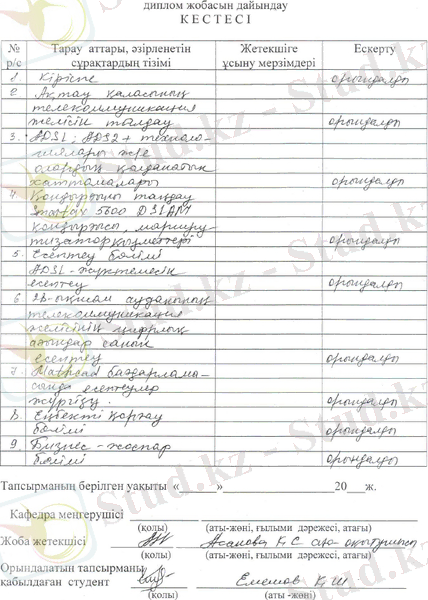 диплом жобасын дайындау
К Е С Т Е С І
№ р/с
Тарау аттары, әзірленетін сұрақтардың тізімі
Жетекшіге ұсыну мерзімдері
Ескерту
1. Кіріспе орындалды
2 Ақтау қаласының
телекоммуникация
желісін талдау орындалды
3. ADSL, ADS2+ техноло-
гиялары және
олардың қолданатын
хаттамалары орындалды
4. Қондырғыны таңдау
Smartax 5600 DSLAM
қондырғысы, маршру-
тизатор қызметтері орындалды
5. Есептеу бөлімі
ADSL-жүктемесін
есептеу орындалды
6 28-ықшам ауданының
телекоммуникация
желісінің цифрлық
ағындар санын
есептеу орындалды
7. Mathcad бағдарлама-
сында есептеулер
жүргізу. орындалды
8. Еңбекті қорғау
бөлімі орындалды
9. Бизнес-жоспар
бөлімі орындалды
Тапсырманың берілген уақыты «______»____________________20___ж.
Кафедра меңгерушісі
(қолы) (аты-жөні, ғылыми дәрежесі, атағы)
Жоба жетекшісі Асанова Қ.С аға оқытушы
(қолы) (аты-жөні, ғылыми дәрежесі, атағы)
Орындалатын тапсырманы
қабылдаған студент Елешов Қ.Ш
(қолы) (аты-жөні)
Stud.kz - Stud.kz